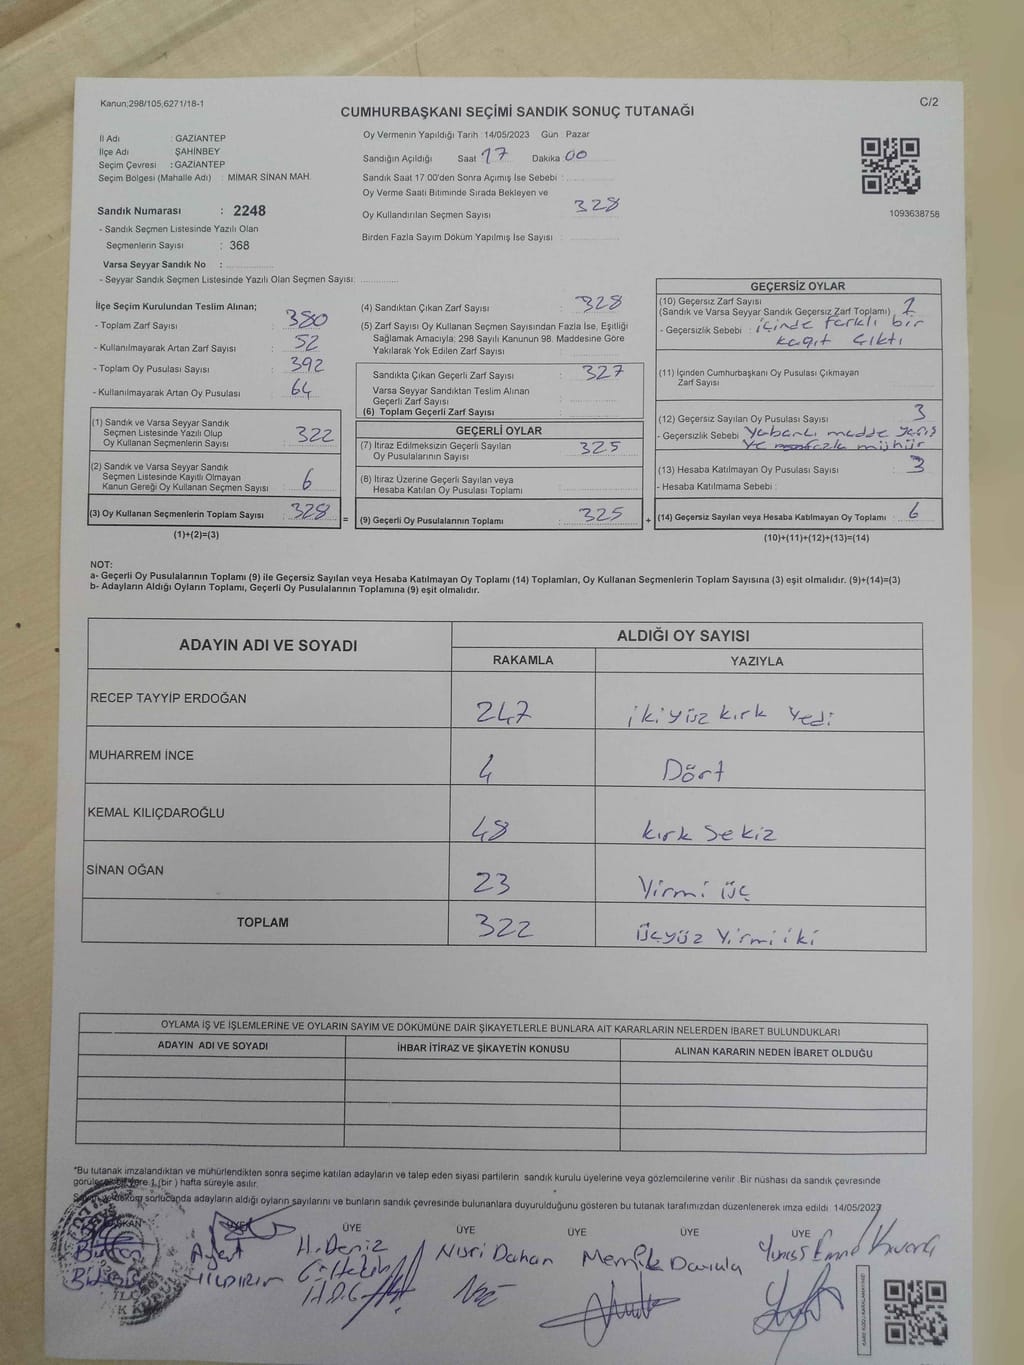 Kanun;298/105,6271/18-1
C/2
CUMHURBAŞKANI SEÇİMİ SANDIK SONUÇ TUTANAĞI
İl Adı : GAZİANTEP
İlçe Adı ŞAHİNBEY
Seçim Çevresi : GAZİANTEP
Seçim Bölgesi (Mahalle Adı) : MİMAR SİNAN MAH.
Sandık Numarası : 2248
- Sandık Seçmen Listesinde Yazılı Olan
Seçmenlerin Sayısı : 368
Varsa Seyyar Sandık No :
- Seyyar Sandık Seçmen Listesinde Yazılı Olan Seçmen Sayısı:
Oy Vermenin Yapıldığı Tarih :14/05/2023 Gün : Pazar
Sandığın Açıldığı Saat 17 Dakika 00
Sandık Saat 17.00'den Sonra Açımış İse Sebebi :
Oy Verme Saati Bitiminde Sırada Bekleyen ve
Oy Kullandırılan Seçmen Sayısı 328
Birden Fazla Sayım Döküm Yapılmış İse Sayısı :
1093638758
İlçe Seçim Kurulundan Teslim Alınan;
- Toplam Zarf Sayısı : 380
- Kullanılmayarak Artan Zarf Sayısı : 52
- Toplam Oy Pusulası Sayısı : 392
- Kullanılmayarak Artan Oy Pusulası : 64
(1) Sandık ve Varsa Seyyar Sandık
Seçmen Listesinde Yazılı Olup
Oy Kullanan Seçmenlerin Sayısı : 322
(2) Sandık ve Varsa Seyyar Sandık
Seçmen Listesinde Kayıtlı Olmayan
Kanun Gereği Oy Kullanan Seçmen Sayısı : 6
(3) Oy Kullanan Seçmenlerin Toplam Sayısı : 328
(1)+(2)=(3)
(4) Sandıktan Çıkan Zarf Sayısı : 328
(5) Zarf Sayısı Oy Kullanan Seçmen Sayısından Fazla İse, Eşitliği
Sağlamak Amacıyla; 298 Sayılı Kanunun 98. Maddesine Göre
Yakılarak Yok Edilen Zarf Sayısı :
Sandıkta Çıkan Geçerli Zarf Sayısı : 327
Varsa Seyyar Sandıktan Teslim Alınan
Geçerli Zarf Sayısı :
(6) Toplam Geçerli Zarf Sayısı :
GEÇERLİ OYLAR
(7) İtiraz Edilmeksizin Geçerli Sayılan
Oy Pusulalarının Sayısı : 325
(8) İtiraz Üzerine Geçerli Sayılan veya
Hesaba Katılan Oy Pusulası Toplamı
=
(9) Geçerli Oy Pusulalarının Toplamı : 325
+
GEÇERSİZ OYLAR
(10) Geçersiz Zarf Sayısı
(Sandık ve Varsa Seyyar Sandık Geçersiz Zarf Toplamı) : 1
- Geçersizlik Sebebi : içinde farklı bir
kağıt çıktı
(11) İçinden Cumhurbaşkanı Oy Pusulası Çıkmayan
Zarf Sayısı
(12) Geçersiz Sayılan Oy Pusulası Sayısı : 3
- Geçersizlik Sebebi : Yabancı madde
ve fazla mühür
(13) Hesaba Katılmayan Oy Pusulası Sayısı : 3
- Hesaba Katılmama Sebebi :
(14) Geçersiz Sayılan veya Hesaba Katılmayan Oy Toplamı : 6
(10)+(11)+(12)+(13)=(14)
NOT:
a- Geçerli Oy Pusulalarının Toplamı (9) ile Geçersiz Sayılan veya Hesaba Katılmayan Oy Toplamı (14) Toplamları, Oy Kullanan Seçmenlerin Toplam Sayısına (3) eşit olmalıdır. (9)+(14)=(3)
b- Adayların Aldığı Oyların Toplamı, Geçerli Oy Pusulalarının Toplamına (9) eşit olmalıdır.
ADAYIN ADI VE SOYADI
ALDIĞI OY SAYISI
RAKAMLA YAZIYLA
RECEP TAYYİP ERDOĞAN 247 ikiyüz kırk Yedi
MUHARREM İNCE 4 Dört
KEMAL KILIÇDAROĞLU 48 kırk sekiz
SİNAN OĞAN 23 Yirmi üç
TOPLAM 322 üçyüz Yirmi iki
OYLAMA İŞ VE İŞLEMLERİNE VE OYLARIN SAYIM VE DÖKÜMÜNE DAİR ŞİKAYETLERLE BUNLARA AİT KARARLARIN NELERDEN İBARET BULUNDUKLARI
ADAYIN ADI VE SOYADI İHBAR İTİRAZ VE ŞİKAYETİN KONUSU ALINAN KARARIN NEDEN İBARET OLDUĞU
*Bu tutanak imzalandıktan ve mühürlendikten sonra seçime katılan adayların ve talep eden siyasi partilerin sandık kurulu üyelerine veya gözlemcilerine verilir .Bir nüshası da sandık çevresinde
1 (bir ) hafta süreyle asılır.
sonucunda adayların aldığı oyların sayılarını ve bunların sandık çevresinde bulunanlara duyurulduğunu gösteren bu tutanak tarafımızdan düzenlenerek imza edildi 14/05/2023
BAŞKAN ÜYE ÜYE ÜYE ÜYE ÜYE ÜYE
YILDIRIM H. Deniz Nuri Dahan Yunus Emre